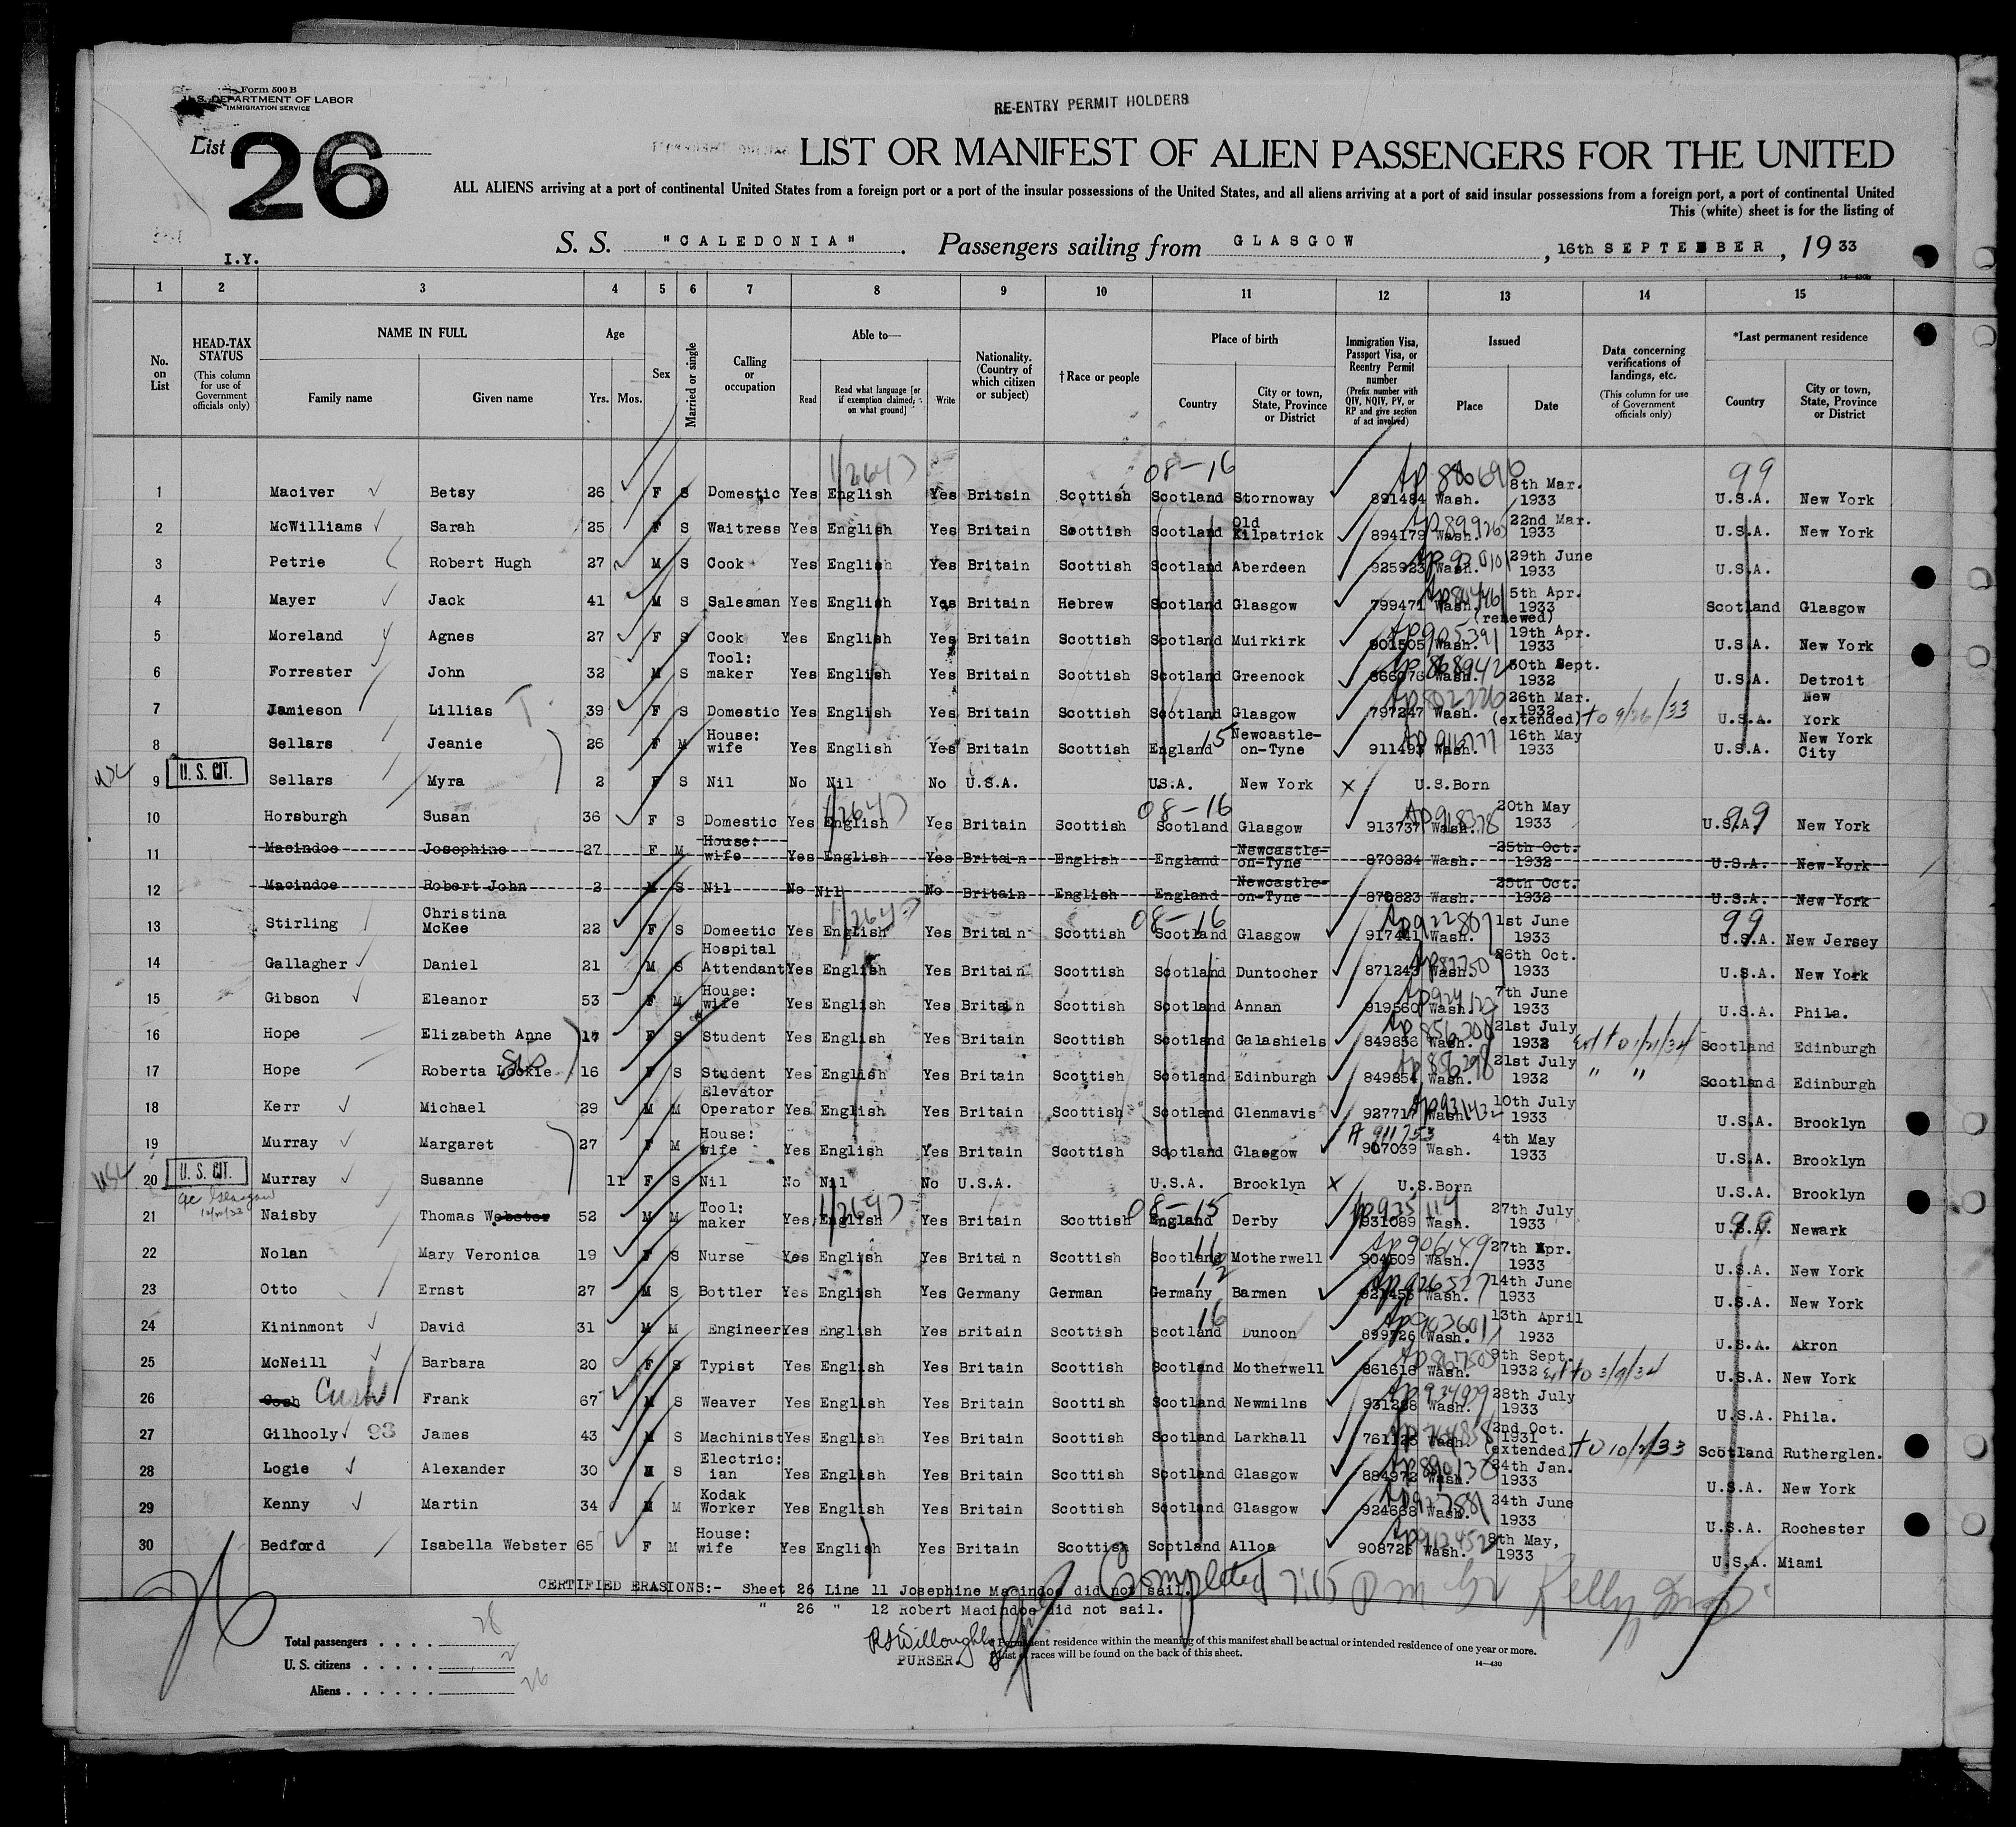 Form 500 B
U. S. DEPARTMENT OF LABOR
IMMIGRATION SERVICE
RE-ENTRY PERMIT HOLDERS
List 26
LIST OR MANIFEST OF ALIEN PASSENGERS FOR THE UNITED
ALL ALIENS arriving at a port of continental United States from a foreign port or a port of the insular possessions of the United States, and all aliens arriving at a port of said insular possessions from a foreign port, a port of continental United
This (white) sheet is for the listing of
S. S. "CALEDONIA". Passengers sailing from GLASGOW, 16th SEPTEMBER, 1933
I.Y.
1 2 3 4 5 6 7 8 9 10 11 12 13 14 15
No. on List
HEAD-TAX STATUS (This column for use of Government officials only)
NAME IN FULL Family name Given name
Age Yrs. Mos.
Sex
Married or single
Calling or occupation
Able to— Read Read what language [or if exemption claimed, on what ground] Write
Nationality. (Country of which citizen or subject)
†Race or people
Place of birth Country City or town, State, Province or District
Immigration Visa, Passport Visa, or Reentry Permit number (Prefix number with QIV, NQIV, PV, or RP and give section of act involved)
Issued Place Date
Data concerning verifications of landings, etc. (This column for use of Government officials only)
*Last permanent residence Country City or town, State, Province or District
1 Maciver Betsy 26 F S Domestic Yes English Yes Britain Scottish Scotland Stornoway 891484 Wash. 8th Mar. 1933 U.S.A. New York
2 McWilliams Sarah 25 F S Waitress Yes English Yes Britain Scottish Scotland Old Kilpatrick 894179 Wash. 22nd Mar. 1933 U.S.A. New York
3 Petrie Robert Hugh 27 M S Cook Yes English Yes Britain Scottish Scotland Aberdeen 925923 Wash. 29th June 1933 U.S.A.
4 Mayer Jack 41 M S Salesman Yes English Yes Britain Hebrew Scotland Glasgow 799471 Wash. 5th Apr. 1933 (renewed) Scotland Glasgow
5 Moreland Agnes 27 F S Cook Yes English Yes Britain Scottish Scotland Muirkirk 901505 Wash. 19th Apr. 1933 U.S.A. New York
6 Forrester John 32 M S Tool: maker Yes English Yes Britain Scottish Scotland Greenock Wash. 30th Sept. 1932 U.S.A. Detroit
7 Jamieson Lillias T. 39 F S Domestic Yes English Yes Britain Scottish Scotland Glasgow 797247 Wash. 26th Mar. 1932 (extended) to 9/26/33 U.S.A. New York
8 Sellars Jeanie 26 F M House: wife Yes English Yes Britain Scottish England Newcastle-on-Tyne 911493 Wash. 16th May 1933 U.S.A. New York City
9 U. S. CIT. Sellars Myra 2 F S Nil No Nil No U.S.A. U.S.A. New York X U.S.Born
10 Horsburgh Susan 36 F S Domestic Yes English Yes Britain Scottish Scotland Glasgow 913737 Wash. 20th May 1933 U.S.A. New York
11 Macindoe Josephine 27 F M House: wife Yes English Yes Britain English England Newcastle-on-Tyne 870824 Wash. 25th Oct. 1932 U.S.A. New York
12 Macindoe Robert John 2 M S Nil No Nil No Britain English England Newcastle-on-Tyne 870823 Wash. 25th Oct. 1932 U.S.A. New York
13 Stirling Christina McKee 22 F S Domestic Yes English Yes Britain Scottish Scotland Glasgow 917441 Wash. 1st June 1933 U.S.A. New Jersey
14 Gallagher Daniel 21 M S Hospital Attendant Yes English Yes Britain Scottish Scotland Duntocher 871243 Wash. 26th Oct. 1933 U.S.A. New York
15 Gibson Eleanor 53 F M House: wife Yes English Yes Britain Scottish Scotland Annan 919560 Wash. 7th June 1933 U.S.A. Phila.
16 Hope Elizabeth Anne 17 F S Student Yes English Yes Britain Scottish Scotland Galashiels 849856 Wash. 21st July 1932 Ext to 1/21/34 Scotland Edinburgh
17 Hope Roberta Lockie 16 F S Student Yes English Yes Britain Scottish Scotland Edinburgh 849854 Wash. 21st July 1932 " " Scotland Edinburgh
18 Kerr Michael 29 M M Elevator Operator Yes English Yes Britain Scottish Scotland Glenmavis 927717 Wash. 10th July 1933 U.S.A. Brooklyn
19 Murray Margaret 27 F M House: wife Yes English Yes Britain Scottish Scotland Glasgow 907039 Wash. 4th May 1933 U.S.A. Brooklyn
20 U. S. CIT. Murray Susanne 11 F S Nil No Nil No U.S.A. U.S.A. Brooklyn X U.S.Born U.S.A. Brooklyn
21 Naisby Thomas Webster 52 M M Tool: maker Yes English Yes Britain Scottish England Derby 931089 Wash. 27th July 1933 U.S.A. Newark
22 Nolan Mary Veronica 19 F S Nurse Yes English Yes Britain Scottish Scotland Motherwell 904509 Wash. 27th Apr. 1933 U.S.A. New York
23 Otto Ernst 27 M S Bottler Yes English Yes Germany German Germany Barmen 921456 Wash. 14th June 1933 U.S.A. New York
24 Kininmont David 31 M M Engineer Yes English Yes Britain Scottish Scotland Dunoon 899726 Wash. 13th April 1933 U.S.A. Akron
25 McNeill Barbara 20 F S Typist Yes English Yes Britain Scottish Scotland Motherwell 861616 Wash. 9th Sept. 1932 Ext to 3/9/34 U.S.A. New York
26 Cosh Cush Frank 67 M S Weaver Yes English Yes Britain Scottish Scotland Newmilns 931288 Wash. 28th July 1933 U.S.A. Phila.
27 Gilhooly 93 James 43 M S Machinist Yes English Yes Britain Scottish Scotland Larkhall 761123 Wash. 2nd Oct. 1931 (extended) to 10/2/33 Scotland Rutherglen.
28 Logie Alexander 30 M S Electric: ian Yes English Yes Britain Scottish Scotland Glasgow 884972 Wash. 24th Jan. 1933 U.S.A. New York
29 Kenny Martin 34 M M Kodak Worker Yes English Yes Britain Scottish Scotland Glasgow 924668 Wash. 24th June 1933 U.S.A. Rochester
30 Bedford Isabella Webster 65 F M House: wife Yes English Yes Britain Scottish Scotland Alloa 908725 Wash. 8th May, 1933 U.S.A. Miami
CERTIFIED ERASIONS:- Sheet 26 Line 11 Josephine Macindoe did not sail.
" 26 " 12 Robert Macindoe did not sail.
Completed 7:15 pm Kelly
Total passengers 28
U. S. citizens 2
Aliens 26
RS Willoughby
PURSER.
*Permanent residence within the meaning of this manifest shall be actual or intended residence of one year or more.
†List of races will be found on the back of this sheet.
14—430